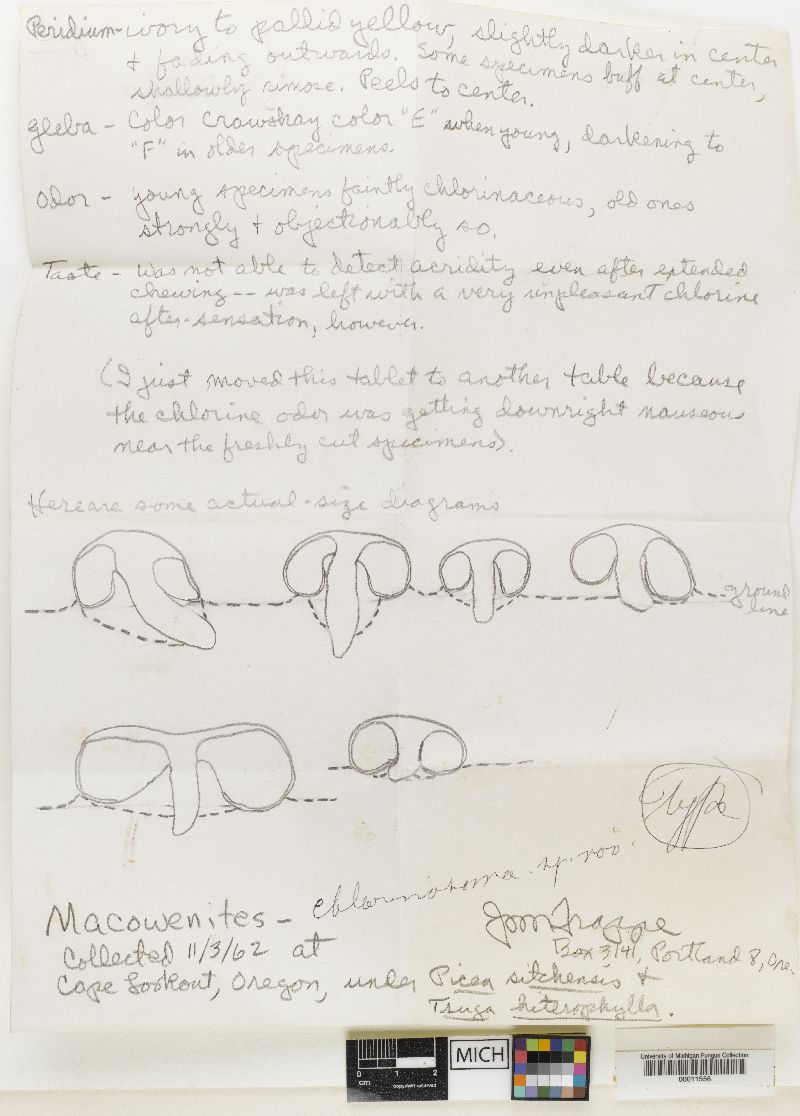 Peridium - ivory to pallid yellow, slightly darker in center
+ fading outwards. Some specimens buff at center,
shallowly rimose. Peels to center.
gleba - Color crawshay color "E" when young, darkening to
"F" in older specimens.
Odor - young specimens faintly chlorinaceous, old ones
strongly + objectionably so.
Taste - was not able to detect acridity even after extended
chewing -- was left with a very unpleasant chlorine
after-sensation, however.
(I just moved this tablet to another table because
the chlorine odor was getting downright nauseous
near the freshly cut specimens).
Here are some actual-size diagrams
ground
line
Type
Macowenites - chlorinosma sp. nov.
Jim Trappe
Box 3141, Portland 8, Ore.
Collected 11/3/62 at
Cape Lookout, Oregon, under Picea sitchensis +
Tsuga heterophylla.
0 1 2
cm
copyright reserved
MICH
University of Michigan Fungus Collection
00011556